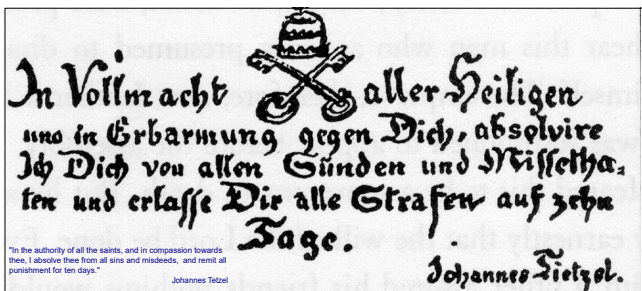 In Vollmacht aller Heiligen
und in Erbarmung gegen Dich, absolvire
Ich Dich von allen Sünden und Missetha-
ten und erlasse Dir alle Strafen auf zehn
Tage.
Johannes Tietzel.
"In the authority of all the saints, and in compassion towards
thee, I absolve thee from all sins and misdeeds, and remit all
punishment for ten days."
Johannes Tetzel